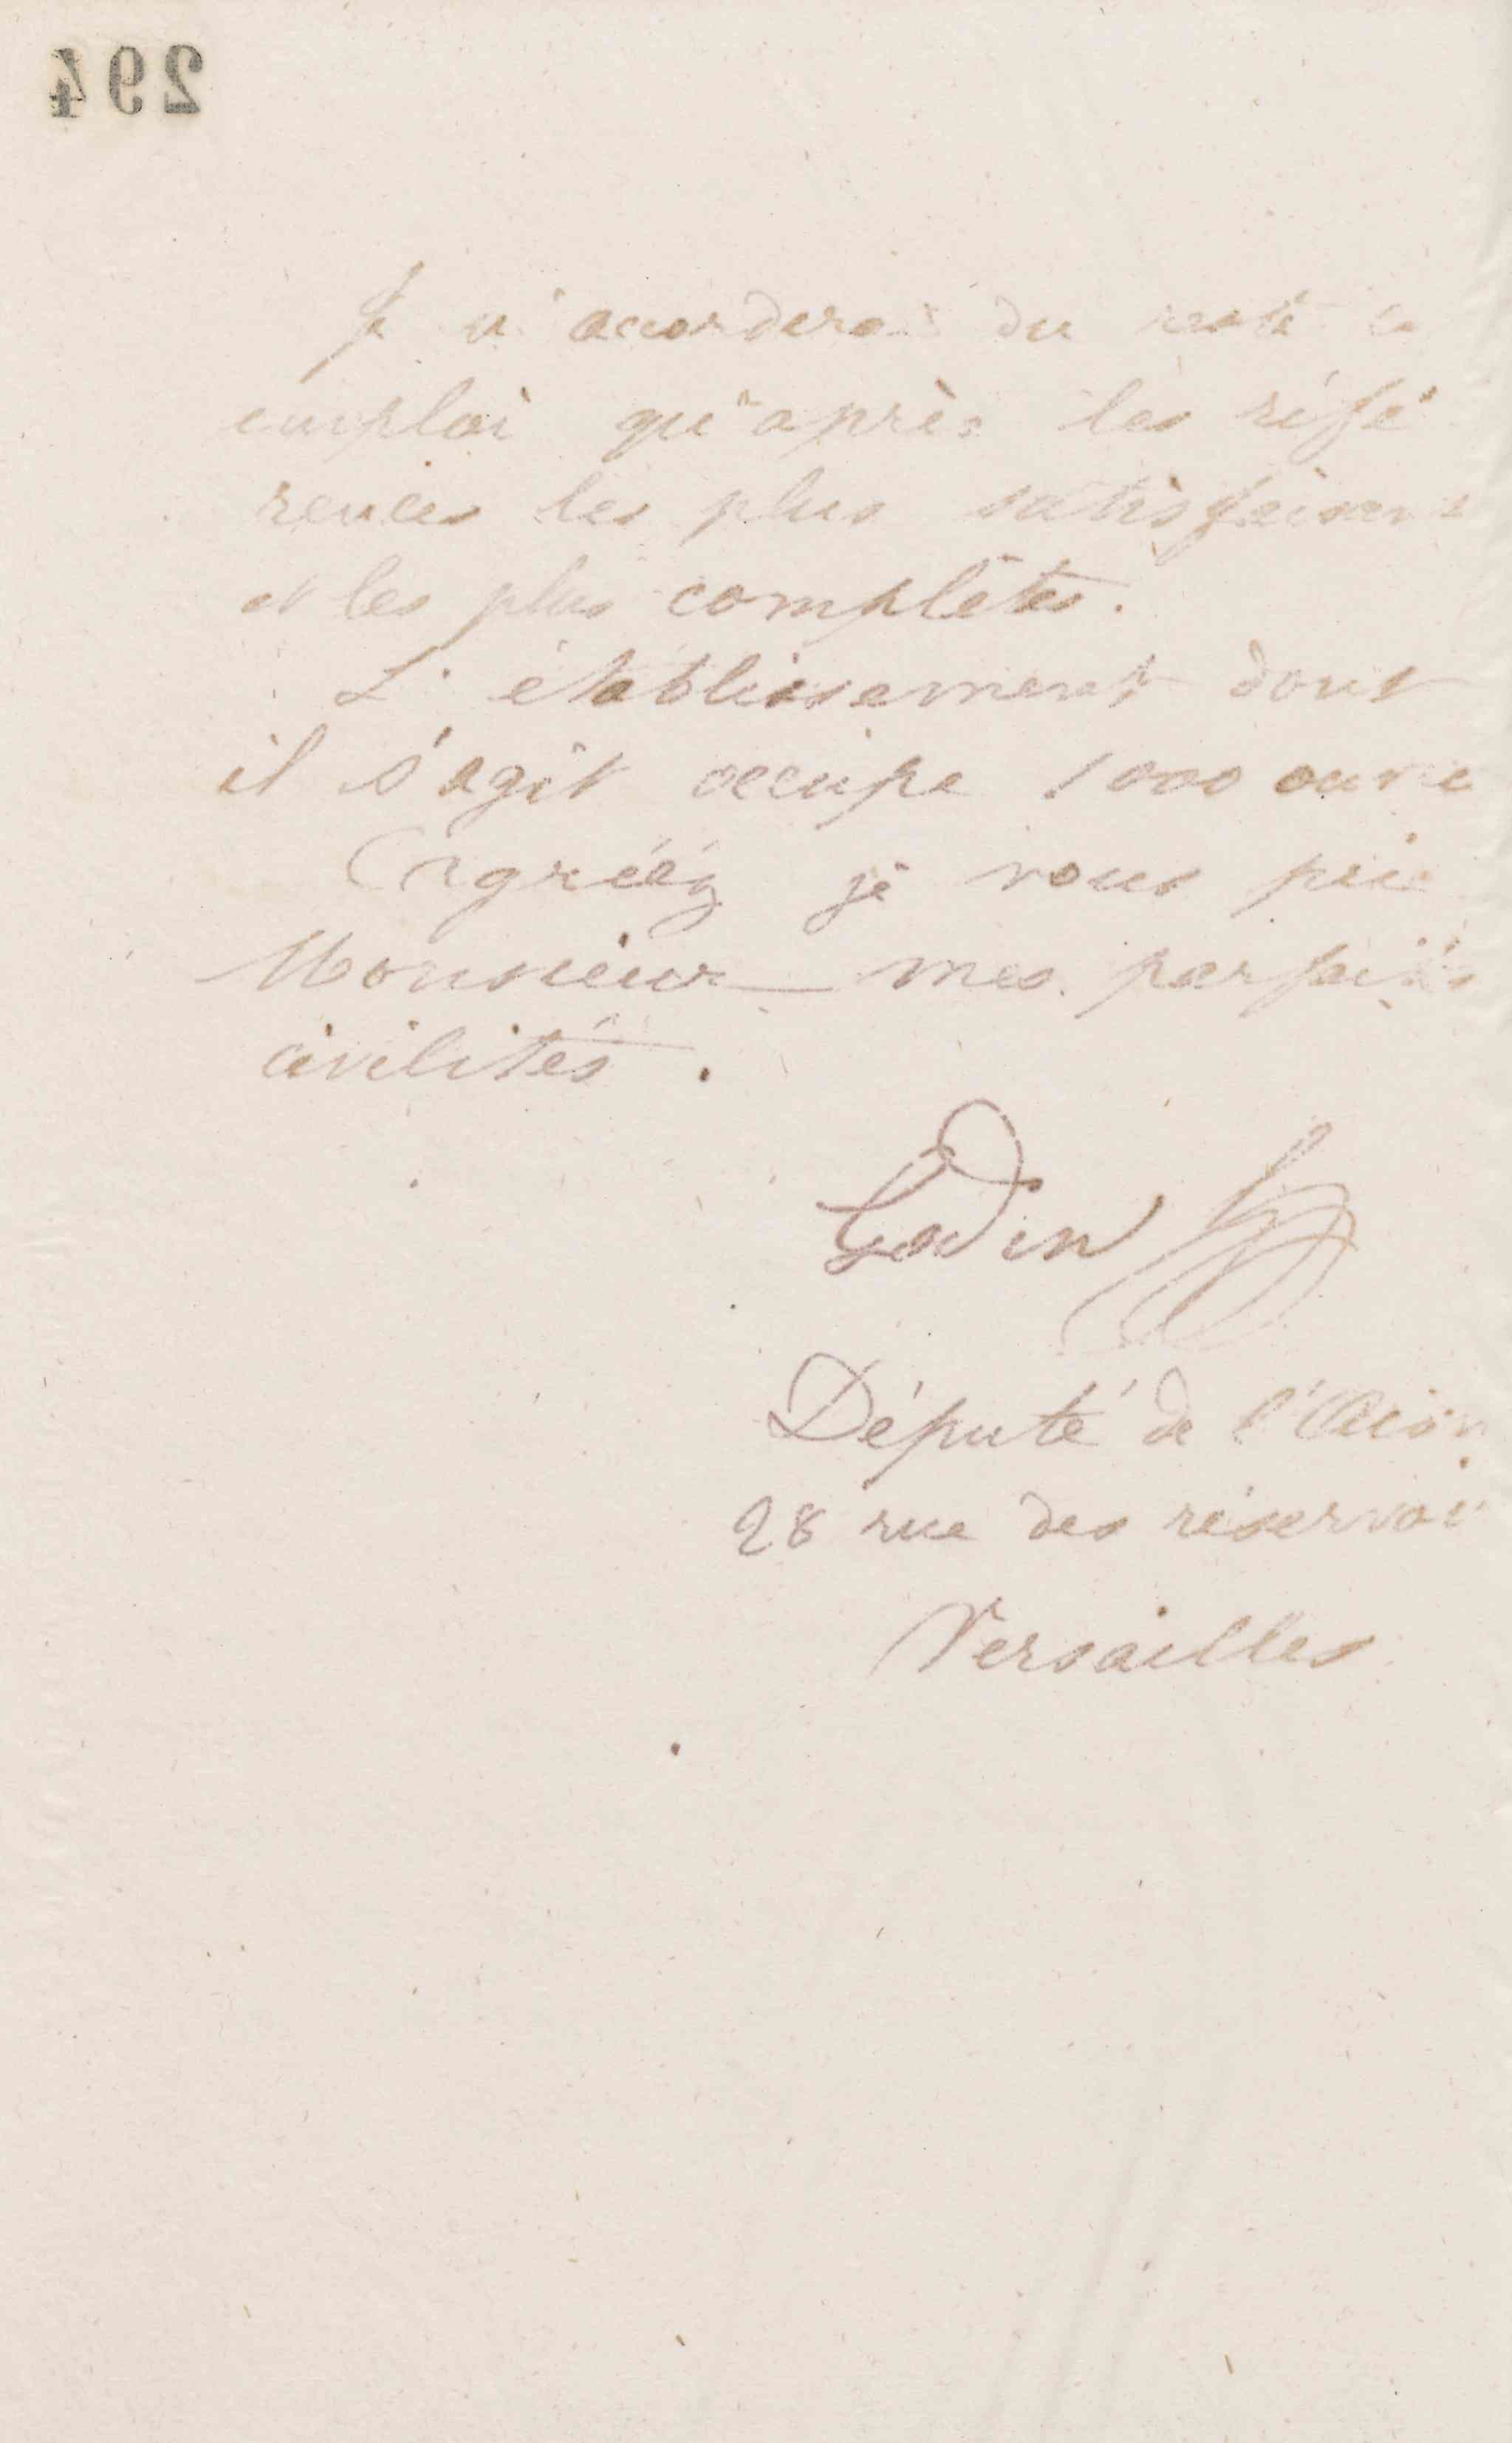 294
Je n'accorderai du reste
emploi qu'après les réfé
rences les plus satisfaisan
et les plus complètes.
L'établissement dont
il s'agit occupe 1000 ouvrie
Agréez je vous prie
Monsieur mes parfaites
civilités.
Godin
Député de l'Aisn
28 rue des réservoi
Versailles